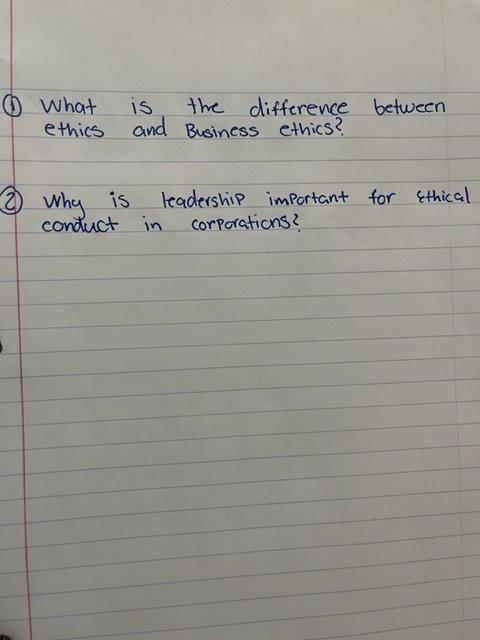 ① What is the difference between
ethics and Business ethics?
② Why is leadership important for Ethical
conduct in corporations?